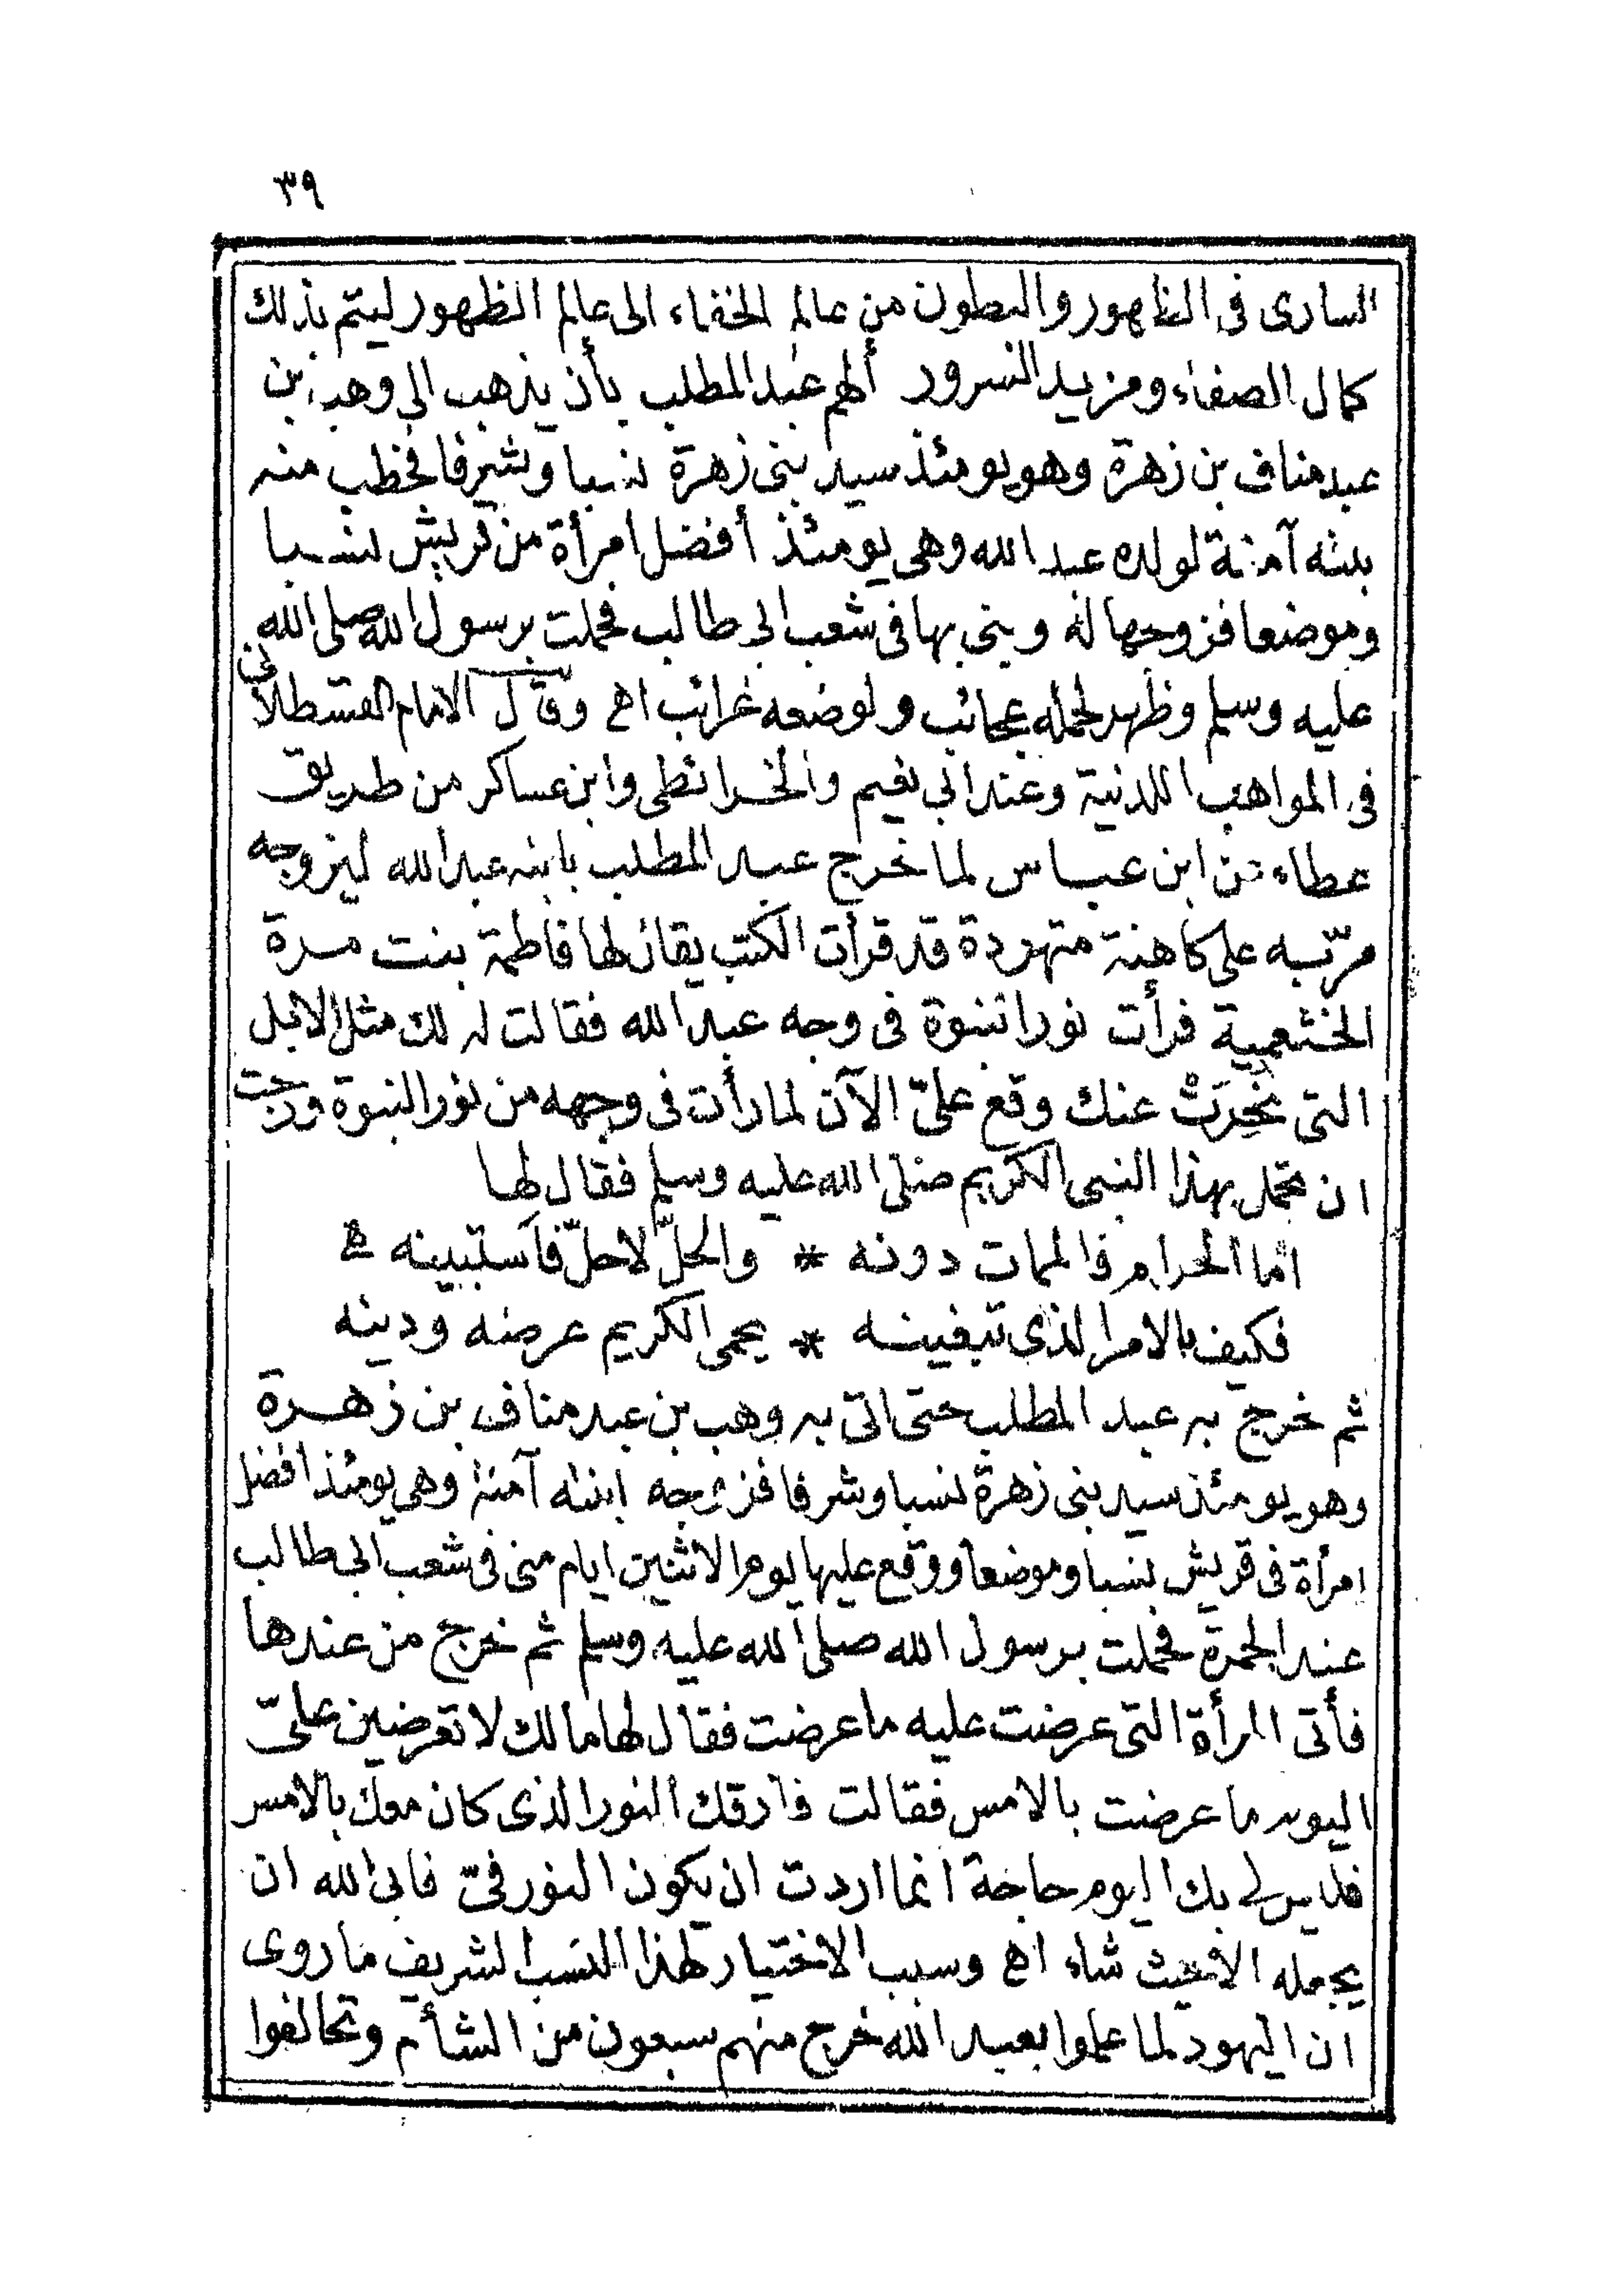 ٣٩
السارى فى الظهور والبطون من عالم الخفاء الى عالم الظهور ليتم بذلك
كمال الصفاء ومزيد السرور ألهم عبد المطلب بأن يذهب الى وهب بن
عبد مناف بن زهرة وهو يومئذ سيد بنى زهرة نسبا وشرفا فخطب منه
بنته آمنة لولده عبد الله وهى يومئذ أفضل امرأة من قريش نسبا
وموضعا فزوجها له وبنى بها فى شعب ابى طالب فحملت برسول الله صلى الله
عليه وسلم وظهر لحمله عجائب ولوضعه غرائب اه وقال الامام القسطلانى
فى المواهب اللدنية وعند ابى نعيم والخرائطى وابن عساكر من طريق
عطاء عن ابن عباس لما خرج عبد المطلب بابنه عبد الله ليزوجه
مرّ به على كاهنة متهودة قد قرأت الكتب يقال لها فاطمة بنت مرة
الخثعمية فرأت نور النبوة فى وجه عبد الله فقالت له لك مثل الابل
التى نُحِرَتْ عنك وقع علىّ الآن لما رأت فى وجهه من نور النبوة ورجت
ان تحمل بهذا النبى الكريم صلى الله عليه وسلم فقال لها
اما الحرام فالممات دونه * والحلّ لا حلّ فأستبينه
فكيف بالامر الذى تبغينه * يحمى الكريم عرضه ودينه
ثم خرج به عبد المطلب حتى اتى به وهب بن عبد مناف بن زهرة
وهو يومئذ سيد بنى زهرة نسبا وشرفا فزوجه ابنته آمنة وهى يومئذ افضل
امرأة فى قريش نسبا وموضعا ووقع عليها يوم الاثنين ايام منى فى شعب ابى طالب
عند الجمرة فحملت برسول الله صلى الله عليه وسلم ثم خرج من عندها
فأتى المرأة التى عرضت عليه ما عرضت فقال لها مالك لا تعرضين علىّ
اليوم ما عرضت بالامس فقالت فارقك النور الذى كان معك بالامس
فليس لى بك اليوم حاجة انما اردت ان يكون النور فىّ فابى الله ان
يجعله الا حيث شاء اه وسبب الاختيار لهذا النسب الشريف ما روى
ان اليهود لما علموا بعبد الله خرج منهم سبعون من الشأم وتحالفوا